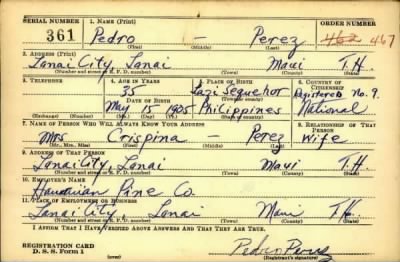 SERIAL NUMBER 1. NAME (Print) ORDER NUMBER
361 Pedro - Perez 462 467
(First) (Middle) (Last)
2. ADDRESS (Print)
Lanai City, Lanai Maui T.H.
(Number and street or R. F. D. number) (Town) (County) (State)
3. TELEPHONE 4. AGE IN YEARS 5. PLACE OF BIRTH 6. COUNTRY OF CITIZENSHIP
35 Lazi Sequehor Registered no. 9.
DATE OF BIRTH (Town or county)
May 15 1905 Philippines National
(Mo.) (Day) (Yr.) (State or country)
7. NAME OF PERSON WHO WILL ALWAYS KNOW YOUR ADDRESS 8. RELATIONSHIP OF THAT PERSON
Mrs Crispina - Perez Wife
(Mr., Mrs., Miss) (First) (Middle) (Last)
9. ADDRESS OF THAT PERSON
Lanai City, Lanai Maui T.H.
(Number and street or R. F. D. number) (Town) (County) (State)
10. EMPLOYER'S NAME
Hawaiian Pine Co.
11. PLACE OF EMPLOYMENT OR BUSINESS
Lanai City, Lanai Maui T.H.
(Number and street or R. F. D. number) (Town) (County) (State)
I AFFIRM THAT I HAVE VERIFIED ABOVE ANSWERS AND THAT THEY ARE TRUE.
REGISTRATION CARD Pedro Perez
D. S. S. Form 1 (over) (Registrant's signature)